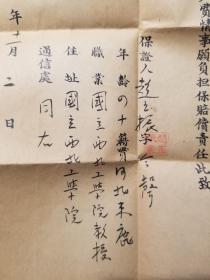 費情事願負担保賠償責任此致
保證人趙玉振字今聲
年齡四十籍貫河北束鹿
職業國立西北工學院教授
住址國立西北工學院
通信處同右
年十一月二日